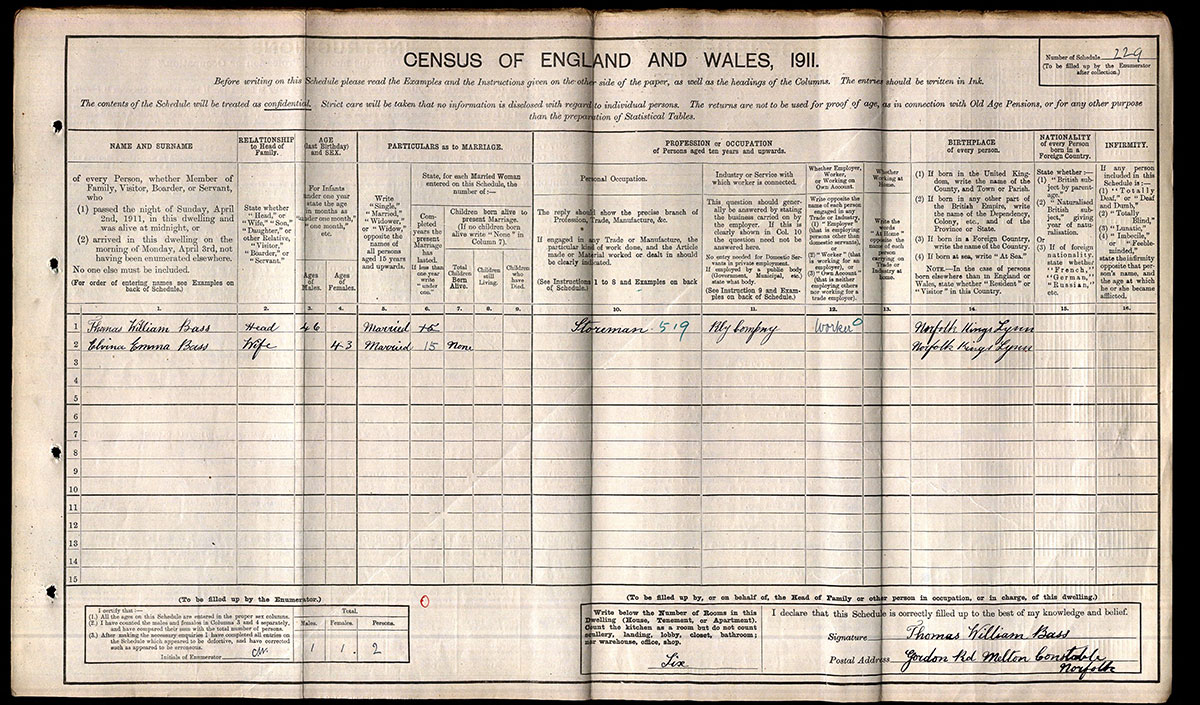 CENSUS OF ENGLAND AND WALES, 1911.
Number of Schedule 229
(To be filled up by the Enumerator
after collection.)
Before writing on this Schedule please read the Examples and the Instructions given on the other side of the paper, as well as the headings of the Columns. The entries should be written in Ink.
The contents of the Schedule will be treated as confidential. Strict care will be taken that no information is disclosed with regard to individual persons. The returns are not to be used for proof of age, as in connection with Old Age Pensions, or for any other purpose
than the preparation of Statistical Tables.
NAME AND SURNAME
of every Person, whether Member of
Family, Visitor, Boarder, or Servant,
who
(1) passed the night of Sunday, April
2nd, 1911, in this dwelling and
was alive at midnight, or
(2) arrived in this dwelling on the
morning of Monday, April 3rd, not
having been enumerated elsewhere.
No one else must be included.
(For order of entering names see Examples on
back of Schedule.)
1.
RELATIONSHIP
to Head of
Family.
State whether
"Head," or
"Wife," "Son,"
"Daughter," or
other Relative,
"Visitor,"
"Boarder," or
"Servant."
2.
AGE
(last Birthday)
and SEX.
For Infants
under one year
state the age
in months as
"under one month,"
"one month,"
etc.
Ages
of
Males.
3.
Ages
of
Females.
4.
PARTICULARS as to MARRIAGE.
Write
"Single,"
"Married,"
"Widower,"
or "Widow,"
opposite the
names of
all persons
aged 15 years
and upwards.
5.
State, for each Married Woman
entered on this Schedule, the
number of:—
Completed
years the
present
Marriage
has
lasted.
If less than
one year
write
"under
one."
6.
Children born alive to
present Marriage.
(If no children born
alive write "None" in
Column 7).
Total
Children
Born
Alive.
7.
Children
still
Living.
8.
Children
who
have
Died.
9.
PROFESSION or OCCUPATION
of Persons aged ten years and upwards.
Personal Occupation.
The reply should show the precise branch of
Profession, Trade, Manufacture, &c.
If engaged in any Trade or Manufacture, the
particular kind of work done, and the Article
made or Material worked or dealt in should
be clearly indicated.
(See Instructions 1 to 8 and Examples on back
of Schedule.)
10.
Industry or Service with
which worker is connected.
This question should generally
be answered by stating
the business carried on by
the employer. If this is
clearly shown in Col. 10
the question need not be
answered here.
No entry needed for Domestic Servants
in private employment.
If employed by a public body
(Government, Municipal, etc.)
state what body.
(See Instruction 9 and Examples
on back of Schedule.)
11.
Whether Employer,
Worker,
or Working on
Own Account.
Write opposite the
name of each person
engaged in any
Trade or Industry,
(1) "Employer"
(that is employing
persons other than
domestic servants),
or
(2) "Worker" (that
is working for an
employer), or
(3) "Own Account"
(that is neither
employing others
nor working for a
trade employer).
12.
Whether
Working at
Home.
Write the
words
"At Home"
opposite the
name of each
person
carrying on
Trade or
Industry at
home.
13.
BIRTHPLACE
of every person.
(1) If born in the United Kingdom,
write the name of the
County, and Town or Parish.
(2) If born in any other part of
the British Empire, write
the name of the Dependency,
Colony, etc., and of the
Province or State.
(3) If born in a Foreign Country,
write the name of the Country.
(4) If born at sea, write "At Sea."
NOTE.—In the case of persons
born elsewhere than in England or
Wales, state whether "Resident" or
"Visitor" in this Country.
14.
NATIONALITY
of every Person
born in a
Foreign Country.
State whether :—
(1) "British subject
by parentage."
(2) "Naturalised
British subject,"
giving
year of naturalisation.
Or
(3) If of foreign
nationality,
state whether
"French,"
"German,"
"Russian,"
etc.
15.
INFIRMITY.
If any person
included in this
Schedule is:—
(1) "Totally
Deaf," or "Deaf
and Dumb,"
(2) "Totally
Blind,"
(3) "Lunatic,"
(4) "Imbecile,"
or "Feeble-minded,"
state the infirmity
opposite that person's
name, and
the age at which
he or she became
afflicted.
16.
1 Thomas William Bass Head 46 Married 15 Storeman 519 Rly Company Worker Norfolk Kings Lynn
2 Elvina Emma Bass Wife 43 Married 15 None Norfolk Kings Lynn
3
4
5
6
7
8
9
10
11
12
13
14
15
(To be filled up by the Enumerator.)
I certify that:—
(1.) All the ages on this Schedule are entered in the proper sex columns.
(2.) I have counted the males and females in Columns 3 and 4 separately,
and have compared their sum with the total number of persons.
(3.) After making the necessary enquiries I have completed all entries on
the Schedule which appeared to be defective, and have corrected
such as appeared to be erroneous.
Initials of Enumerator
Total.
Males. Females. Persons.
1 1 2
0
(To be filled up by, or on behalf of, the Head of Family or other person in occupation, or in charge, of this dwelling.)
Write below the Number of Rooms in this
Dwelling (House, Tenement, or Apartment).
Count the kitchen as a room but do not count
scullery, landing, lobby, closet, bathroom;
nor warehouse, office, shop.
Six
I declare that this Schedule is correctly filled up to the best of my knowledge and belief.
Signature Thomas William Bass
Postal Address Gordon Rd Melton Constable
Norfolk